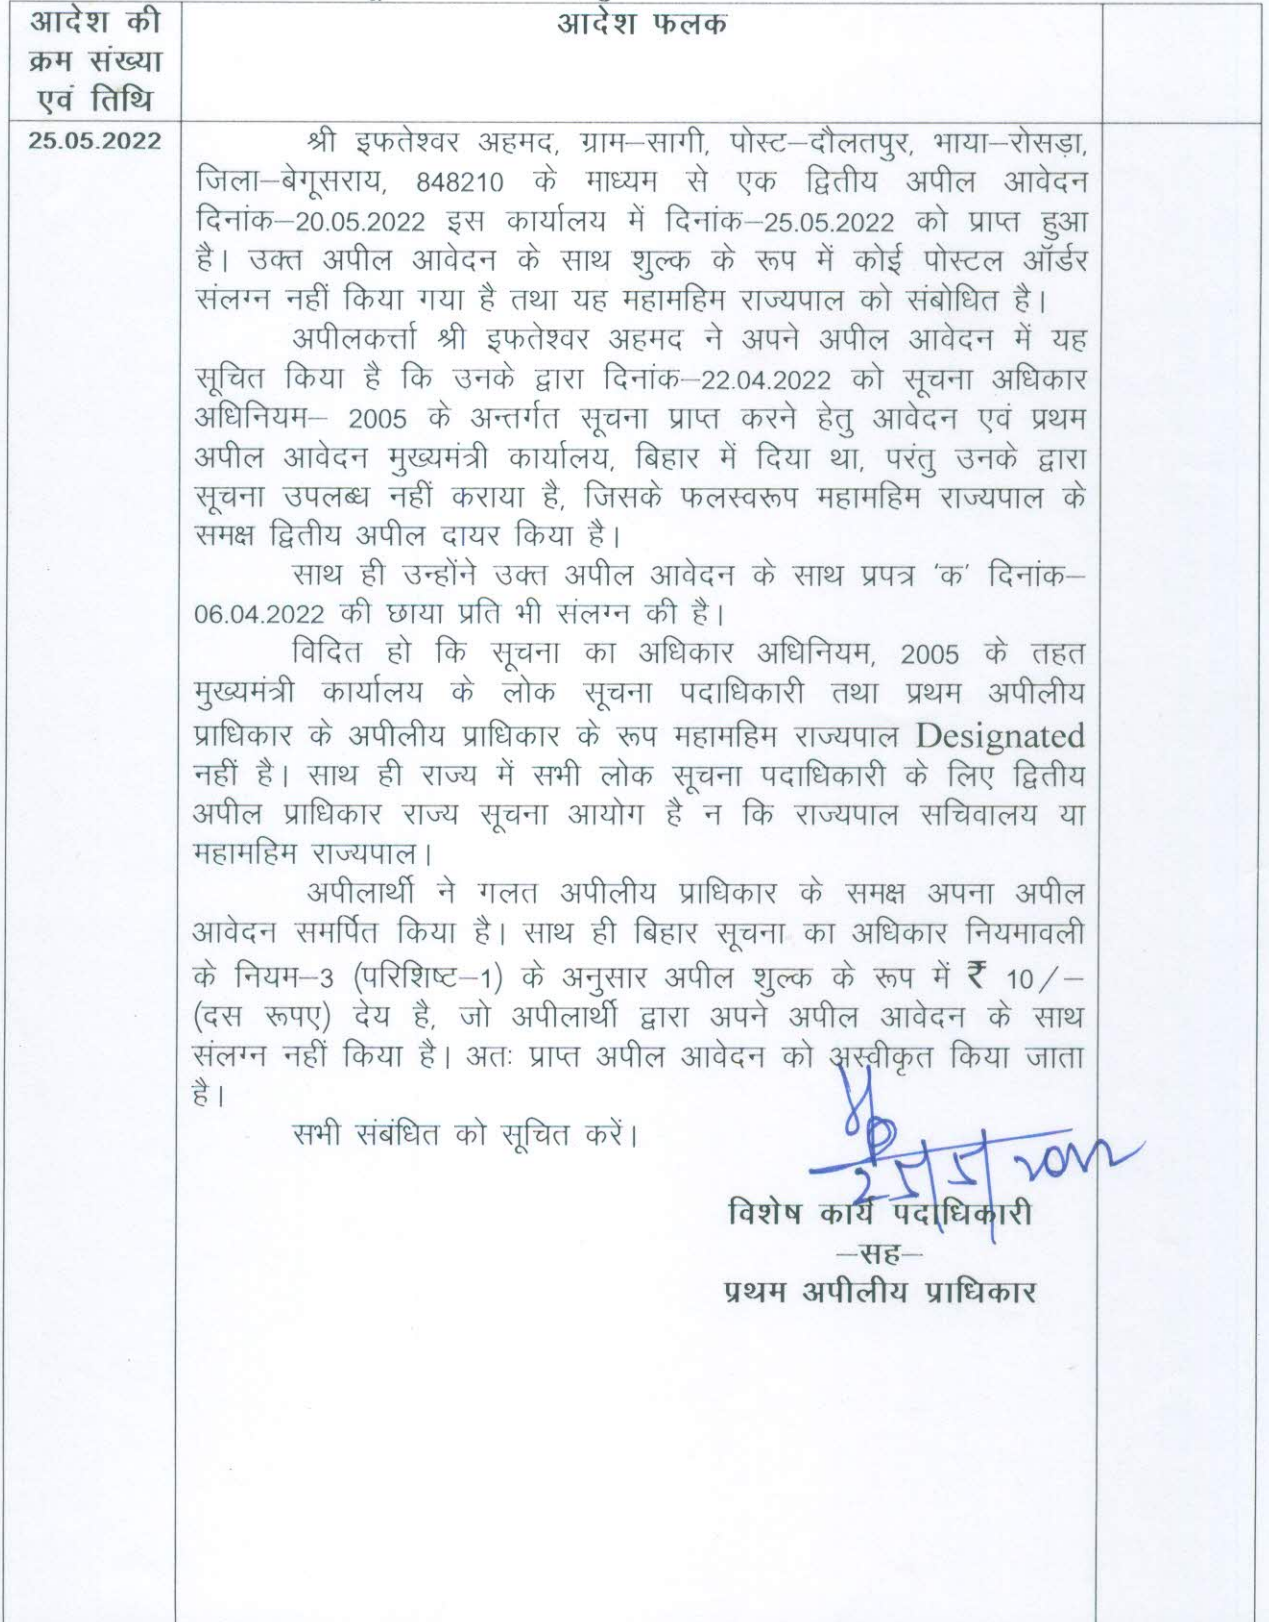 आदेश की
क्रम संख्या
एवं तिथि
आदेश फलक
25.05.2022
श्री इफतेश्वर अहमद, ग्राम–सागी, पोस्ट–दौलतपुर, भाया–रोसड़ा,
जिला–बेगूसराय, 848210 के माध्यम से एक द्वितीय अपील आवेदन
दिनांक–20.05.2022 इस कार्यालय में दिनांक–25.05.2022 को प्राप्त हुआ
है। उक्त अपील आवेदन के साथ शुल्क के रूप में कोई पोस्टल ऑर्डर
संलग्न नहीं किया गया है तथा यह महामहिम राज्यपाल को संबोधित है।
अपीलकर्त्ता श्री इफतेश्वर अहमद ने अपने अपील आवेदन में यह
सूचित किया है कि उनके द्वारा दिनांक–22.04.2022 को सूचना अधिकार
अधिनियम– 2005 के अन्तर्गत सूचना प्राप्त करने हेतु आवेदन एवं प्रथम
अपील आवेदन मुख्यमंत्री कार्यालय, बिहार में दिया था, परंतु उनके द्वारा
सूचना उपलब्ध नहीं कराया है, जिसके फलस्वरूप महामहिम राज्यपाल के
समक्ष द्वितीय अपील दायर किया है।
साथ ही उन्होंने उक्त अपील आवेदन के साथ प्रपत्र 'क' दिनांक–
06.04.2022 की छाया प्रति भी संलग्न की है।
विदित हो कि सूचना का अधिकार अधिनियम, 2005 के तहत
मुख्यमंत्री कार्यालय के लोक सूचना पदाधिकारी तथा प्रथम अपीलीय
प्राधिकार के अपीलीय प्राधिकार के रूप महामहिम राज्यपाल Designated
नहीं है। साथ ही राज्य में सभी लोक सूचना पदाधिकारी के लिए द्वितीय
अपील प्राधिकार राज्य सूचना आयोग है न कि राज्यपाल सचिवालय या
महामहिम राज्यपाल।
अपीलार्थी ने गलत अपीलीय प्राधिकार के समक्ष अपना अपील
आवेदन समर्पित किया है। साथ ही बिहार सूचना का अधिकार नियमावली
के नियम–3 (परिशिष्ट–1) के अनुसार अपील शुल्क के रूप में ₹ 10/–
(दस रूपए) देय है, जो अपीलार्थी द्वारा अपने अपील आवेदन के साथ
संलग्न नहीं किया है। अतः प्राप्त अपील आवेदन को अस्वीकृत किया जाता
है।
सभी संबंधित को सूचित करें।
25/5/2022
विशेष कार्य पदाधिकारी
–सह–
प्रथम अपीलीय प्राधिकार